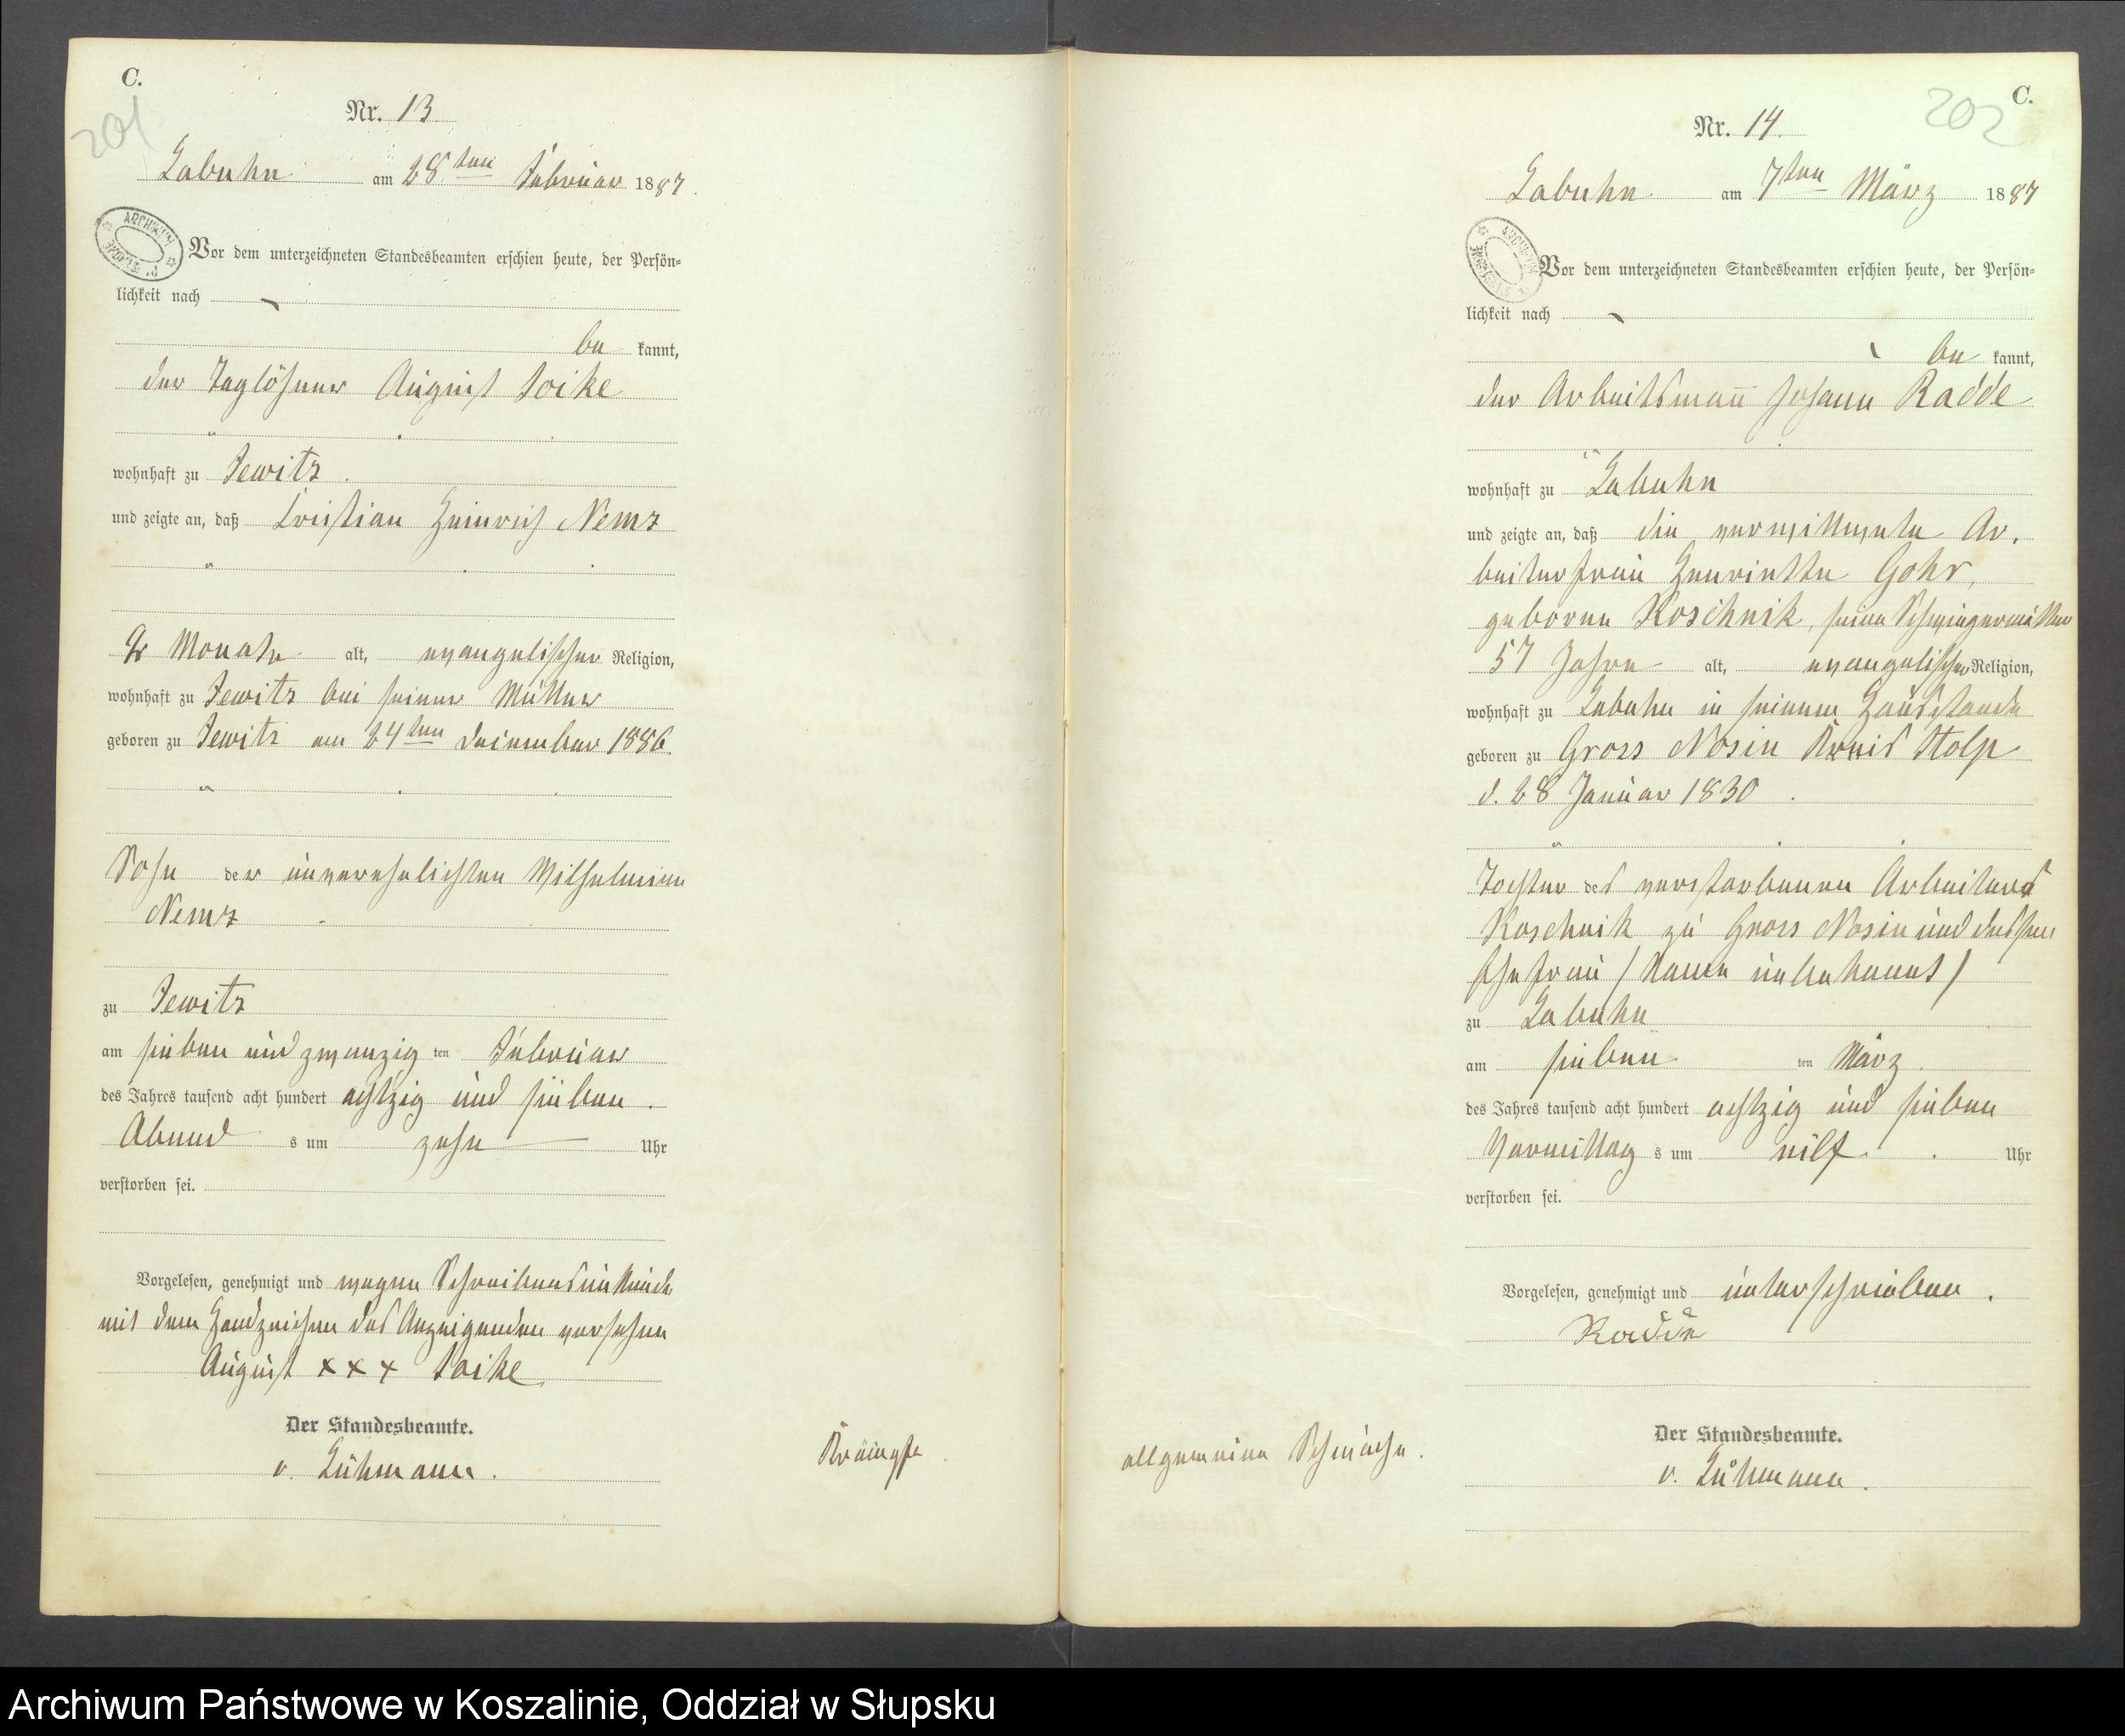 C.
201
Nr. 13
Labuhn am 28ten Februar 1887.
Vor dem unterzeichneten Standesbeamten erschien heute, der Persön=
lichkeit nach
be kannt,
der Taglöhner August Foike
wohnhaft zu Jewitz.
und zeigte an, daß Cristian Heinrich Nemz
Monate alt, evangelischer Religion,
wohnhaft zu Jewitz bei seiner Mutter
geboren zu Jewitz am 24ten Dezember 1886.
Sohn der unverehelichten Wilhelmine
Nemz
zu Jewitz
am sieben und zwanzig ten Februar
des Jahres tausend acht hundert achtzig und sieben.
Abend s um zehn Uhr
verstorben sei.
Vorgelesen, genehmigt und wegen Schreibensunkunde
mit dem Handzeichen des Anzeigenden versehen
August x x x Foike
Der Standesbeamte.
v. Lühmann.
Krämpfe
C.
202
Nr. 14.
Labuhn am 7ten März 1887
Vor dem unterzeichneten Standesbeamten erschien heute, der Persön=
lichkeit nach
be kannt,
der Arbeitsmann Johann Radde
wohnhaft zu Labuhn
und zeigte an, daß die verwittwete Ar.
beiterfrau Henriette Gohr,
geborne Koschnik, seine Schwiegermutter
57 Jahre alt, evangelischer Religion,
wohnhaft zu Labuhn in seinem Hausstande
geboren zu Gross Nosin Kreis Stolp
d. 28 Januar 1830.
Tochter des verstorbenen Arbeiters
Koschnik zu Gross Nosin und dessen
Ehefrau / Name unbekannt /
zu Labuhn
am sieben ten März.
des Jahres tausend acht hundert achtzig und sieben
Vormittag s um eilf. Uhr
verstorben sei.
Vorgelesen, genehmigt und unterschrieben.
Radde
Der Standesbeamte.
v. Lühmann.
allgemeine Schwäche.
Archiwum Państwowe w Koszalinie, Oddział w Słupsku